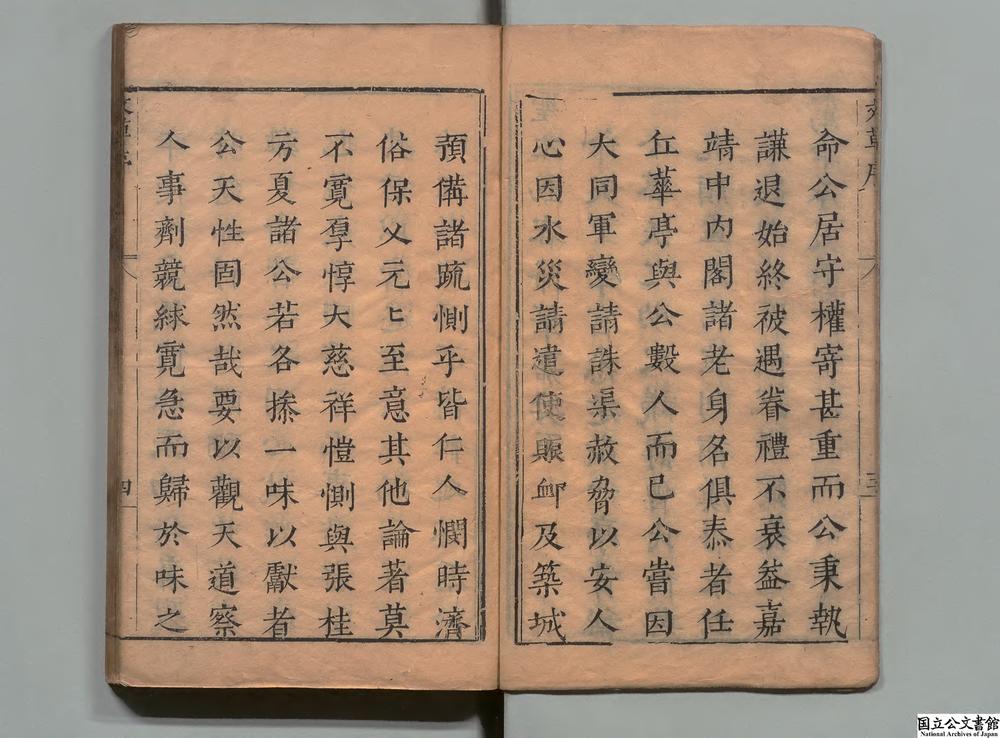 命公居守權寄甚重而公秉執
謙退始終被遇眷禮不衰葢嘉
靖中内閣諸老身名俱泰者任
丘華亭與公數人而已公嘗因
大同軍變請誅渠赦脅以安人
心因水災請遣使賑邺及築城
預備諸疏惻乎皆仁人憫時濟
俗保乂元匕至意其他論著莫
不寛厚惇大慈祥愷惻與張桂
方夏諸公若各搽一味以獻者
公天性固然哉要以觀天道察
人事劑競絿寛急而歸於味之
三
四
国立公文書館
National Archives of Japan